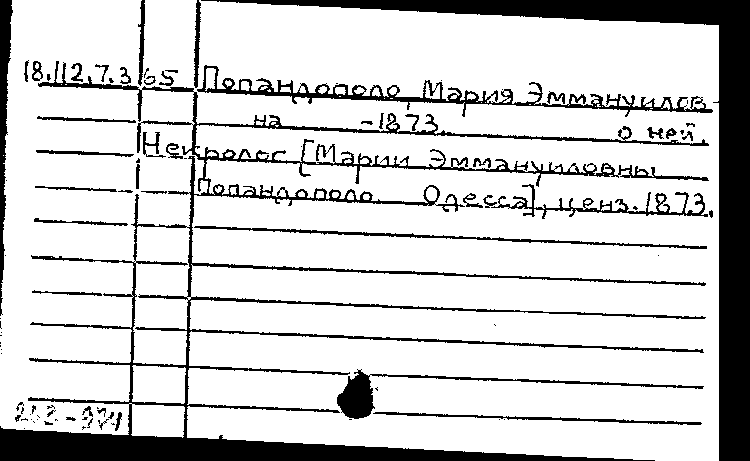 18.112.7.365 Попандополо, Мария Эммануилов-
на -1873. о ней.
Некролог [Марии Эммануиловны
Попандополо. Одесса], ценз. 1873.